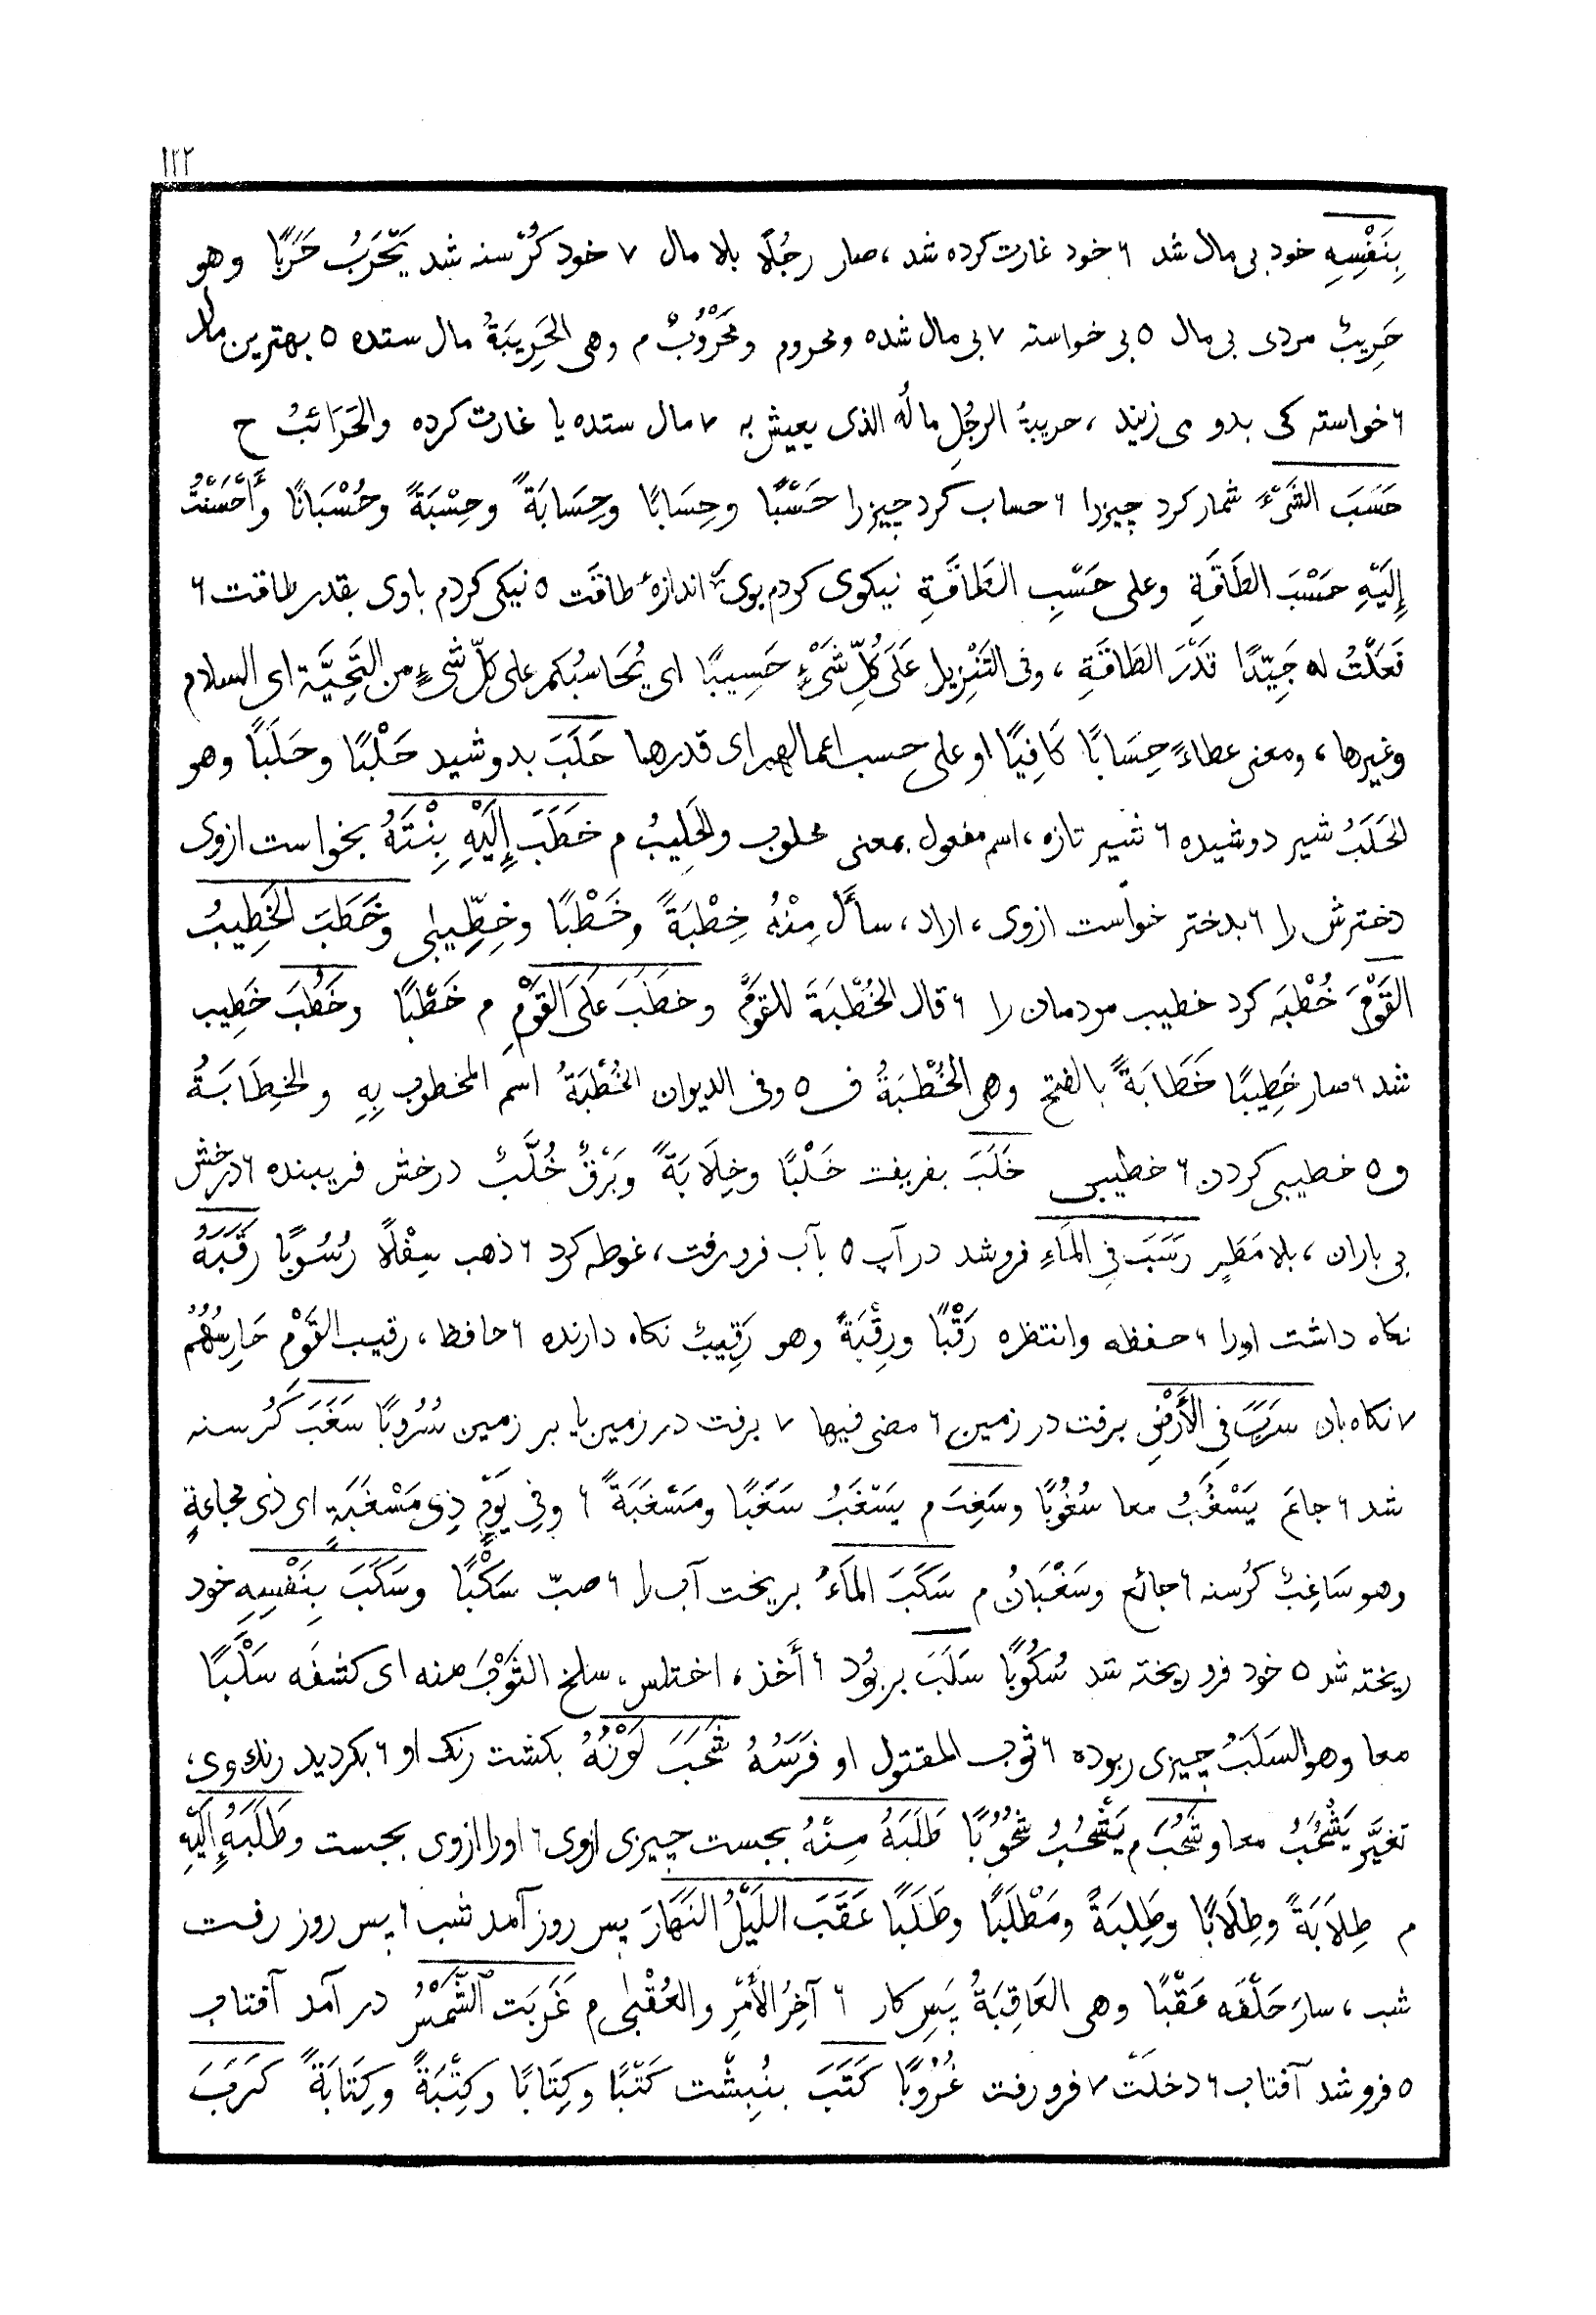 ۱۲۲
بِنَفْسِهِ خود بی مال شد ۶ خود غارت کرده شد، صار رجُلًا بلا مال ۷ خود کُرْسنه شد يَحْرَبُ حَرَبًا وهو
حَرِيبٌ مردی بی مال ۵ بی خواسته ۷ بی مال شده ومحروم ومَحْرُوبٌ م وهی الحَرِيبَةُ مال ستده ۵ بهترین مال
۶ خواسته کی بدو می زیند، حريبةُ الرجُلِ مالُه الذی یعیش به ۷ مال ستده یا غارت کرده والحَرَائبُ ح
حَسَبَ الشَّیْءَ شمار کرد چیزرا ۶ حساب کرد چیزرا حَسْبًا وحِسَابًا وحِسَابَةً وحِسْبَةً وحُسْبَانًا وأَحْسَنْتُ
إِلَيْهِ حَسْبَ الطَاقَةِ وعلى حَسْبِ الطَاقَةِ نیکوی کردم بوی اندازهٔ طاقت ۵ نیکی کردم باوی بقدر طاقت ۶
فَعَلْتُ له جَيِّدًا قَدْرَ الطَاقَةِ، وفى التَنْزِيل عَلَى كُلِّ شَیْءٍ حَسِيبًا ای يُحَاسِبُكم على كلّ شیءٍ من التَحِيَّة ای السلام
وغيرها، ومعنى عطاءً حِسَابًا كَافِيًا او على حسب اعمالهم ای قدرها حَلَبَ بدوشید حَلْبًا وحَلَبًا وهو
الحَلَبُ شیر دوشیده ۶ شیر تازه، اسم مفعول بمعنى محلوب والحَلِيبُ م خَطَبَ إِلَيْهِ بِنْتَهُ بخواست ازوی
دخترش را ۶ بدختر خواست ازوی، اراد، سأل مِنْهُ خِطْبَةً وخَطْبًا وخِطِّيبى وخَطَبَ الخَطِيبُ
القَوْمَ خُطْبَه کرد خطیب مردمان را ۶ قال الخُطْبَةَ للقَوْمِ وخَطَبَ عَلَى القَوْمِ م خَطْبًا وخَطُبَ خَطِيب
شد ۶ صار خَطِيبًا خَطَابَةً بالفتح وهی الخُطْبَةُ ف ۵ وفى الديوان الخُطْبَةُ اسم المخطوب بِهِ والخِطَابَةُ
و ۵ خطیبی کردن ۶ خطیبی خَلَبَ بفریفت خَلْبًا وخِلَابَةً وبَرْقٌ خُلَّبٌ درخش فریبنده ۶ درخش
بی باران، بلا مَطَرٍ رَسَبَ فِی المَاءِ فروشد در آب ۵ بآب فرورفت، غوطه کرد ۶ ذهب سِفْلًا رُسُوبًا رَقَبَهُ
نکاه داشت اورا ۶ حفظه وانتظره رَقْبًا ورِقْبَةً وهو رَقِيبٌ نکاه دارنده ۶ حافظ، رقيب القَوْم حَارِسُهُمْ
۷ نکاه بان سَرَبَ فِی الأَرْضِ برفت در زمین ۶ مضى فيها ۷ برفت در زمین یا بر زمین سُرُوبًا سَغَبَ کُرسنه
شد ۶ جاع يَسْغُبُ معا سُغُوبًا وسَغِبَ م يَسْغَبُ سَغَبًا ومَسْغَبَةً ۶ وفِی يَوْمٍ ذِی مَسْغَبَةٍ ای ذی مجاعةٍ
وهو سَاغِبٌ کُرسنه ۶ جائع وسَغْبَانُ م سَكَبَ المَاءَ بریخت آب را ۶ صبّ سَكْبًا وسَكَبَ بِنَفْسِهِ خود
ریخته شد ۵ خود فرو ریخته شد سُكُوبًا سَلَبَ بربُود ۶ أخذ، اختلس، سلخ الثَوْبَ منه ای كشفه سَلْبًا
معا وهو السَلَبُ چیزی ربوده ۶ ثوب المقتول او فَرَسُهُ شَحَبَ لَوْنُهُ بکشت رنک او ۶ بکردید رنك وی،
تغيَّر يَشْحُبُ معا وشَحُبَ م يَشْحُبُ شُحُوبًا طَلَبَهُ مِنْهُ بجست چیزی ازوی ۶ اورا ازوی بجست وطَلَبَهُ إِلَيْهِ
م طِلَابَةً وطِلَابًا وطَلِبَةً ومَطْلَبًا وطَلَبًا عَقَبَ اللَيْلُ النَهَارَ پس روز آمد شب ۶ پس روز رفت
شب، سار خَلْفَه عَقْبًا وهی العَاقِبَةُ پَسِ کار ۶ آخِرُ الأَمْرِ والعُقْبى م غَرَبَت الشَّمْسُ در آمد آفتاب
۵ فروشد آفتاب ۶ دخلَتْ ۷ فرورفت غُرُوبًا كَتَبَ بنبشت كَتْبًا وكِتَابًا وكِتْبَةً وكِتَابَةً كَرَبَ